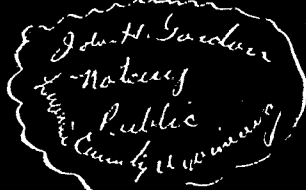 John H. Gordon
Notary
Public
County Wyoming